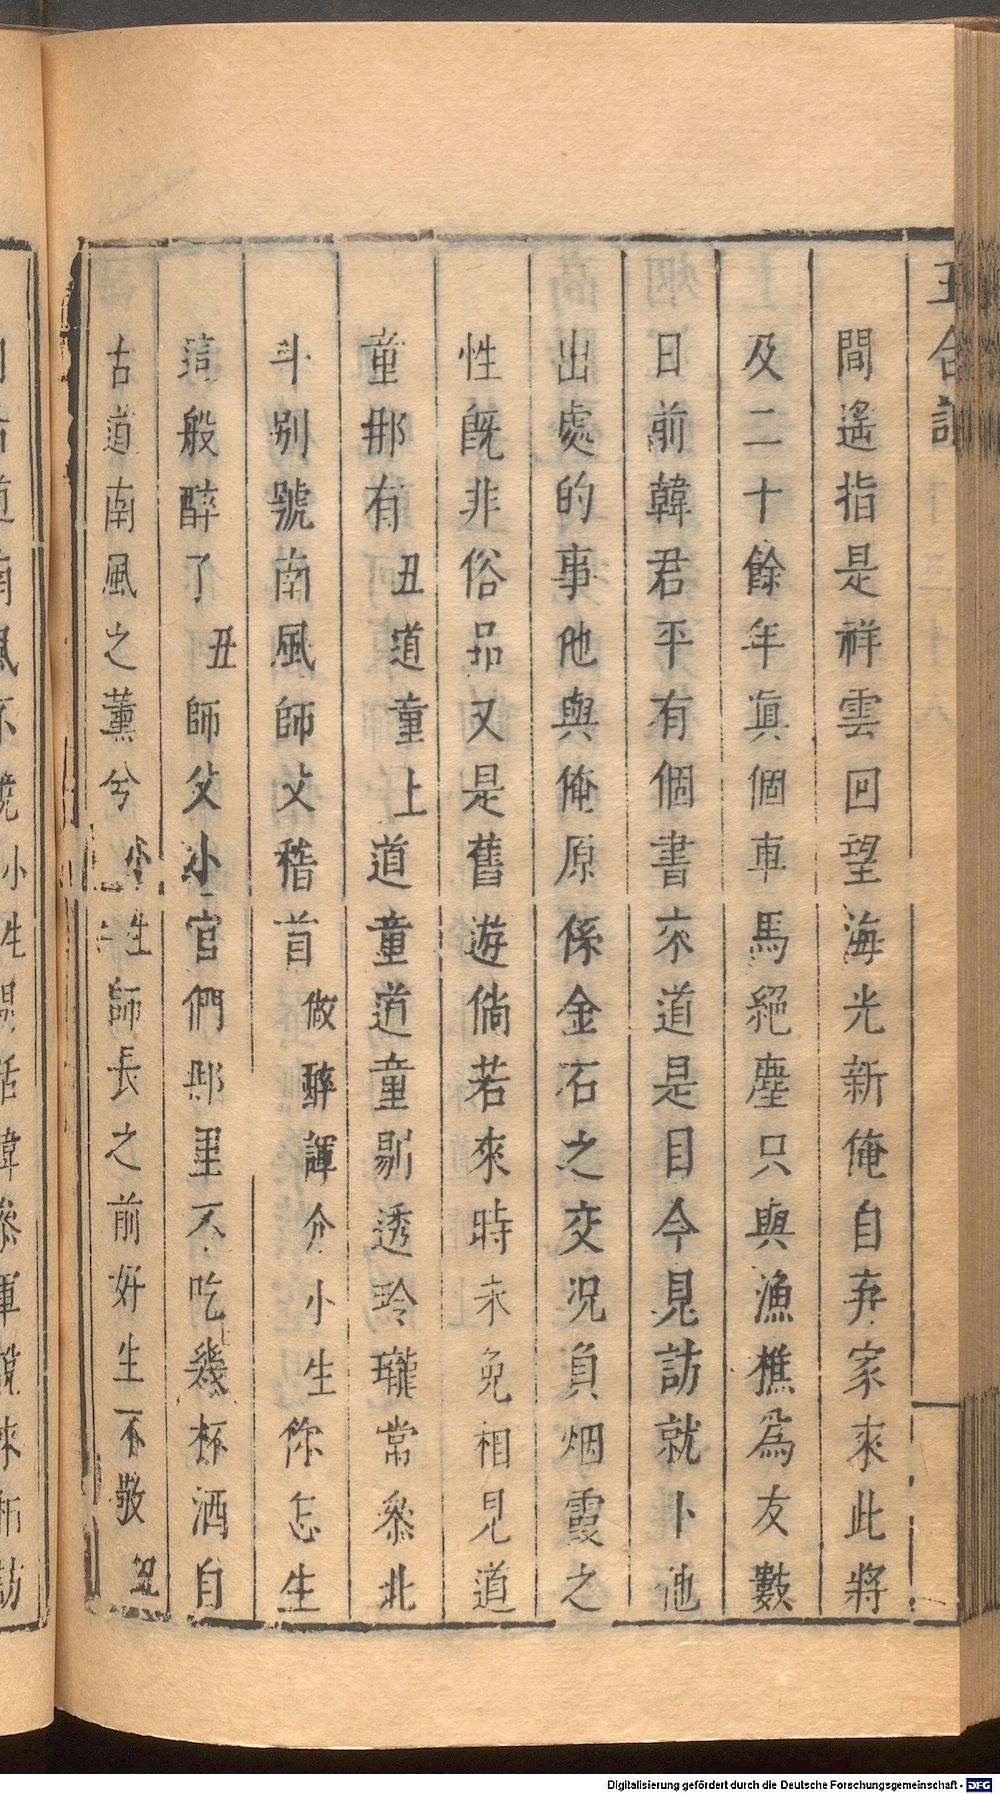 玉合記
間遙指是祥雲回望海光新俺自弃家來此將
及二十餘年眞個車馬絕塵只與漁樵爲友數
日前韓君平有個書來道是目今見訪就卜他
出處的事他與俺原係金石之交况負烟霞之
性旣非俗品又是舊遊倘若來時未免相見道
童那有丑道童上道童道童剔透玲瓏常叅北
斗别號南風師父稽首做醉諢介小生你怎生
這般醉了丑師父小官們那里不吃幾杯酒自
古道南風之薰兮小生師長之前好生不敬
Digitalisierung gefördert durch die Deutsche Forschungsgemeinschaft - DFG